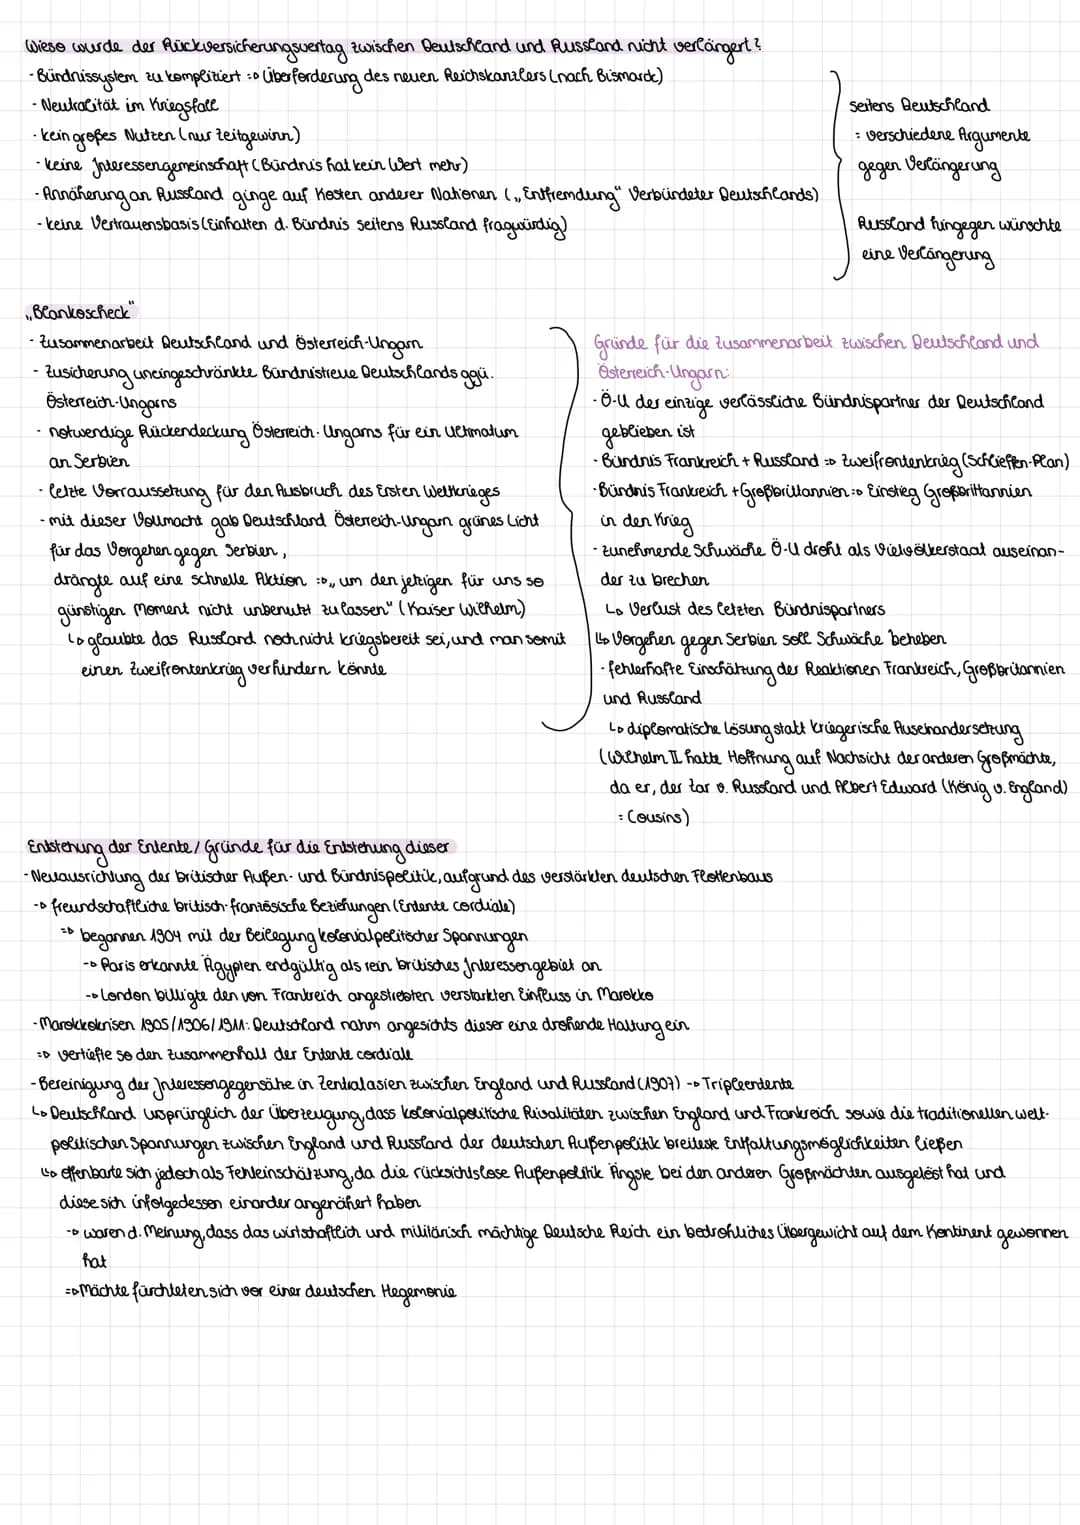 Wieso wurde der Rückversicherungsvertag zwischen Deutschland und Russland nicht verlängert?
- Bündnissystem zu kompliziert => Überforderung des neuen Reichskanzlers (nach Bismarck)
- Neutralität im Kriegsfall
- kein großes Nutzen (nur Zeitgewinn)
- keine Interessengemeinschaft (Bündnis hat kein Wert mehr)
- Annäherung an Russland ginge auf Kosten anderer Nationen („Entfremdung" Verbündeter Deutschlands)
- keine Vertrauensbasis (Einhalten d. Bündnis seitens Russland fragwürdig)
seitens Deutschland
= verschiedene Argumente
gegen Verlängerung
Russland hingegen wünschte
eine Verlängerung
„Blankoscheck"
- Zusammenarbeit Deutschland und Österreich-Ungarn
- Zusicherung uneingeschränkte Bündnistreue Deutschlands ggü.
Österreich-Ungarns
- notwendige Rückendeckung Österreich-Ungarns für ein Ultimatum
an Serbien
- letzte Vorraussetzung für den Ausbruch des Ersten Weltkrieges
- mit dieser Vollmacht gab Deutschland Österreich-Ungarn grünes Licht
für das Vorgehen gegen Serbien,
drängte auf eine schnelle Aktion => „um den jetzigen für uns so
günstigen Moment nicht unbenutzt zu lassen" (Kaiser Wilhelm)
↳ glaubte das Russland noch nicht kriegsbereit sei, und man somit
einen Zweifrontenkrieg verhindern könnte
Gründe für die Zusammenarbeit zwischen Deutschland und
Österreich-Ungarn:
- Ö-U der einzige verlässliche Bündnispartner der Deutschland
geblieben ist
- Bündnis Frankreich + Russland => Zweifrontenkrieg (Schlieffen-Plan)
- Bündnis Frankreich + Großbrittannien => Einstieg Großbrittannien
in den Krieg
- zunehmende Schwäche Ö-U droht als Vielvölkerstaat auseinan-
der zu brechen
↳ Verlust des letzten Bündnispartners
↳ Vorgehen gegen Serbien soll Schwäche beheben
- fehlerhafte Einschätzung der Reaktionen Frankreich, Großbritannien
und Russland
↳ diplomatische Lösung statt kriegerische Auseinandersetzung
(Wilhelm II hatte Hoffnung auf Nachsicht der anderen Großmächte,
da er, der Zar v. Russland und Albert Edward (König v. England)
= Cousins)
Entstehung der Entente / Gründe für die Entstehung dieser
- Neuausrichtung der britischer Außen- und Bündnispolitik, aufgrund des verstärkten deutschen Flottenbaus
-> freundschaftliche britisch-französische Beziehungen (Entente cordiale)
=> begannen 1904 mit der Beilegung kolonialpolitischer Spannungen
-> Paris erkannte Ägypten endgültig als rein britisches Interessengebiet an
-> London billigte den von Frankreich angestrebten verstärkten Einfluss in Marokko
- Marokkokrisen 1905/1906/1911: Deutschland nahm angesichts dieser eine drohende Haltung ein
=> vertiefte so den Zusammenhalt der Entente cordiale
- Bereinigung der Interessengegensätze in Zentralasien zwischen England und Russland (1907) -> Tripleentente
↳ Deutschland ursprünglich der Überzeugung, dass kolonialpolitische Rivalitäten zwischen England und Frankreich sowie die traditionellen welt-
politischen Spannungen zwischen England und Russland der deutschen Außenpolitik breiteste Entfaltungsmöglichkeiten ließen
↳ offenbarte sich jedoch als Fehleinschätzung, da die rücksichtslose Außenpolitik Ängste bei den anderen Großmächten ausgelöst hat und
diese sich infolgedessen einander angenähert haben
-> waren d. Meinung, dass das wirtschaftlich und militärisch mächtige Deutsche Reich ein bedrohliches Übergewicht auf dem Kontinent gewonnen
hat
=> Mächte fürchteten sich vor einer deutschen Hegemonie